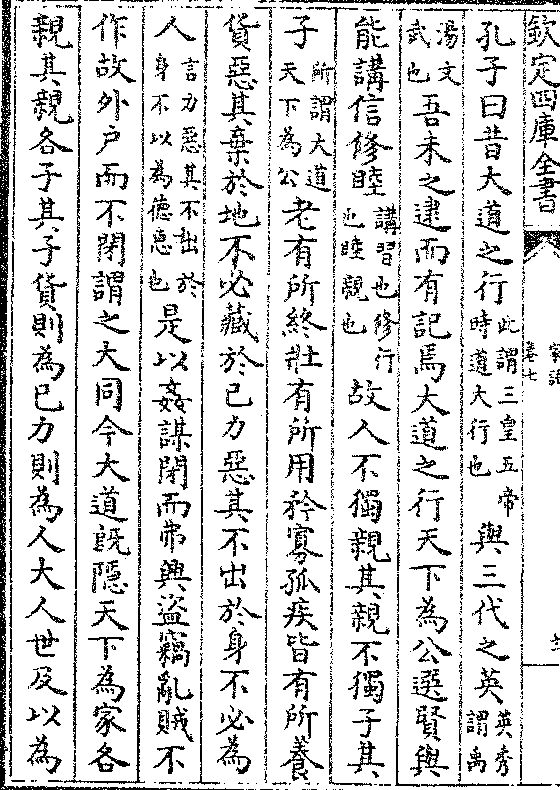 欽定四庫全書
家語
卷七
孔子曰昔大道之行此謂三皇五帝時道大行也與三代之英英秀謂禹
湯文武也吾未之逮而有記焉大道之行天下為公選賢與
能講信修睦講習也修行也睦親也故人不獨親其親不獨子其
子所謂大道天下為公老有所終壯有所用矜寡孤疾皆有所養
貨惡其棄於地不必藏於己力惡其不出於身不必為
人言力惡其不出於身不以為德惠也是以姦謀閉而弗興盜竊亂賊不
作故外户而不閉謂之大同今大道旣隱天下為家各
親其親各子其子貨則為己力則為人大人世及以為